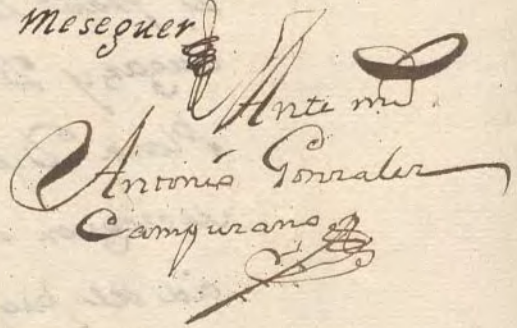 Meseguer
Ante mi
Antonio Gonzalez
Campuzano